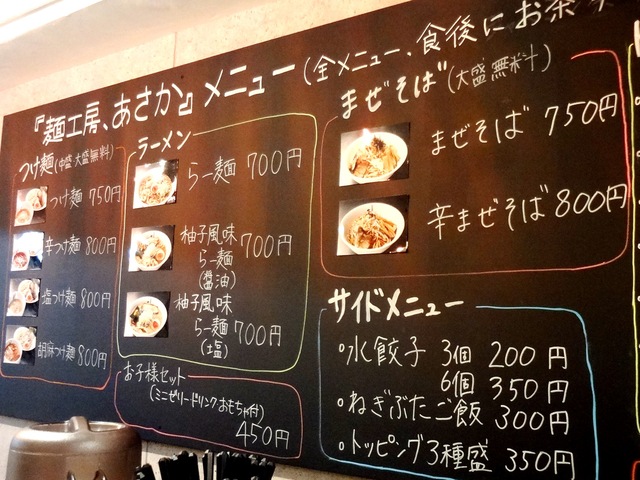 『麺工房、あさか』メニュー(全メニュー、食後にお茶
つけ麺(中盛・大盛無料)
つけ麺 750円
辛つけ麺 800円
塩つけ麺 800円
胡麻つけ麺 800円
ラーメン
らー麺 700円
柚子風味
らー麺
(醤油)
700円
柚子風味
らー麺
(塩)
700円
お子様セット
(ミニゼリードリンクおもちゃ付)
450円
まぜそば(大盛無料)
まぜそば 750円
辛まぜそば 800円
サイドメニュー
・水餃子 3個 200円
6個 350円
・ねぎぶたご飯 300円
・トッピング3種盛 350円